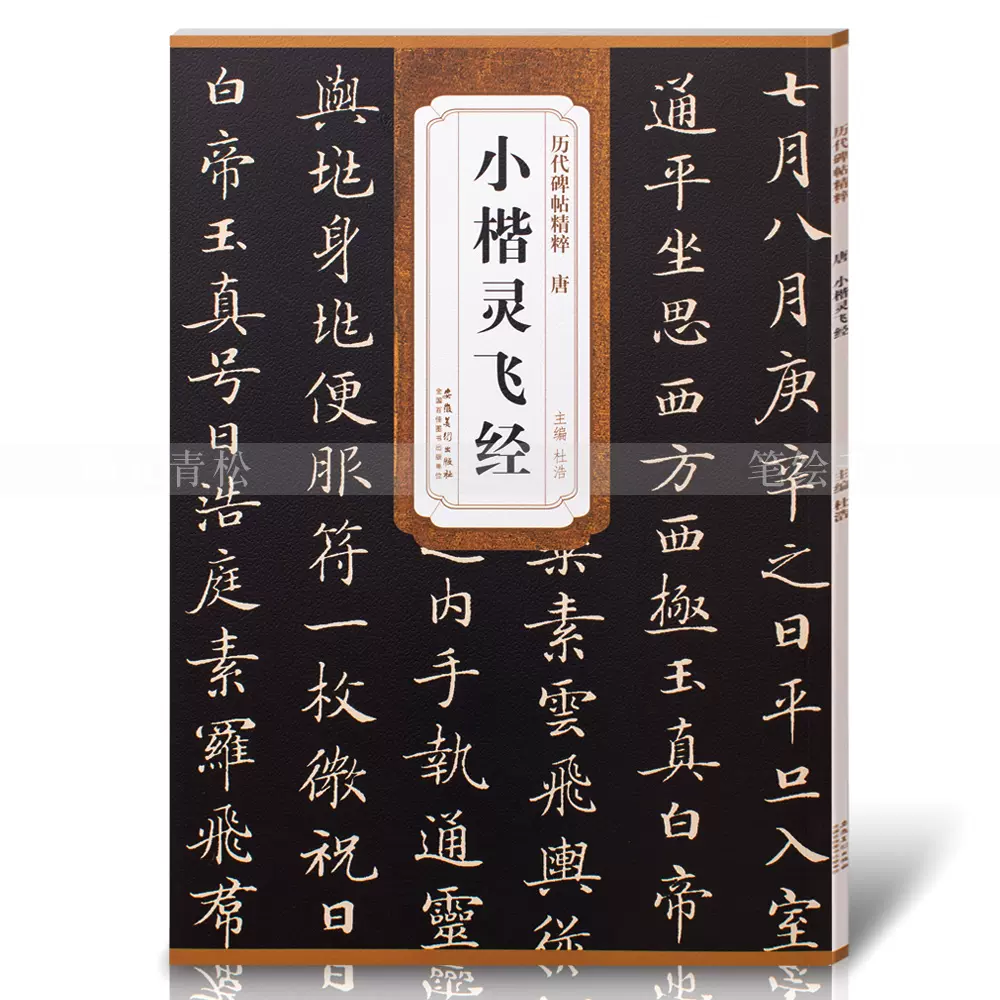 七月八月庚辛之日平旦入室
通平坐思西方西極玉真白帝
素雲飛輿從
内手執通靈
與兆身兆便服符一枚微祝曰
白帝玉真号曰浩庭素羅飛帬
历代碑帖精粹 唐
小楷灵飞经
主编 杜浩
安徽美术出版社
全国百佳图书出版单位
历代碑帖精粹 唐 小楷灵飞经 主编 杜浩
青松
笔绘